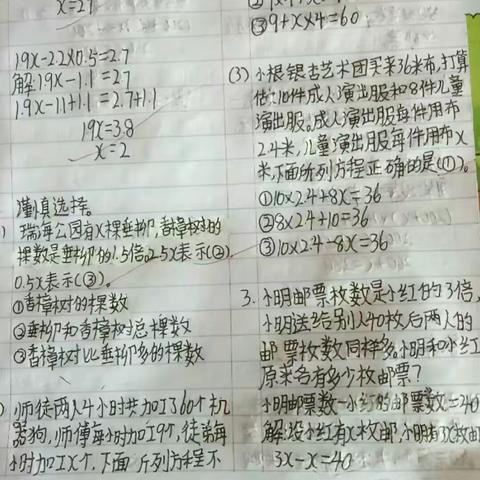 x=27
19x-2.2×0.5=2.7
解:19x-1.1=2.7
1.9x-1.1+1.1=2.7+1.1
19x=3.8
x=2
谨慎选择。
瑞海公园有x棵垂柳,香樟树的
棵数是垂柳的1.5倍。2.5x表示(②),
0.5x表示(③)。
①香樟树的棵数
②垂柳和香樟树总棵数
③香樟树比垂柳多的棵数
师徒两人4小时共加工360个机
器狗,师傅每小时加工9个,徒弟每
小时加工x个。下面所列方程不
③9+x×4=60
(3)小根银杏艺术团买来36米布,打算
估:10件成人演出服和8件儿童
演出服。成人演出服每件用布
2.4米,儿童演出服每件用布x
米,下面所列方程正确的是(①)。
①10×2.4+8x=36
②8×2.4+10=36
③10×2.4-8x=36
3.小明邮票枚数是小红的3倍,
小明送给别人40枚后两人的
邮票枚数同样多。小明和小红
原来各有多少枚邮票?
小明邮票数-小红的邮票数=40
解:设小红有x枚邮,小明有3x枚邮
3x-x=40